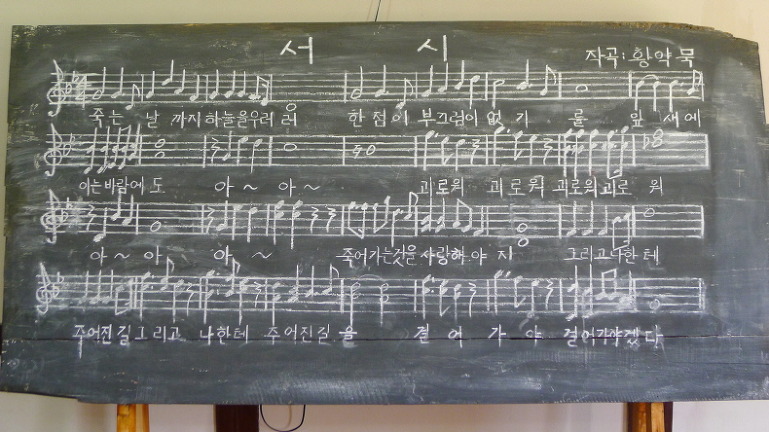 서 시
작곡: 황악묵
죽는 날 까지 하늘을우러 러 한 점이 부끄럼이 없 기 를 잎 새에
이는 바람에 도 아~ 아~ 괴로워 괴로워 괴로워 괴로 워
아~ 아 아 ~ 죽어가는것을 사랑해 야 지 그리고 나한 테
주어진 길 그리고 나한테 주 어진 길 을 걸 어 가 야 걸어가야겠 다